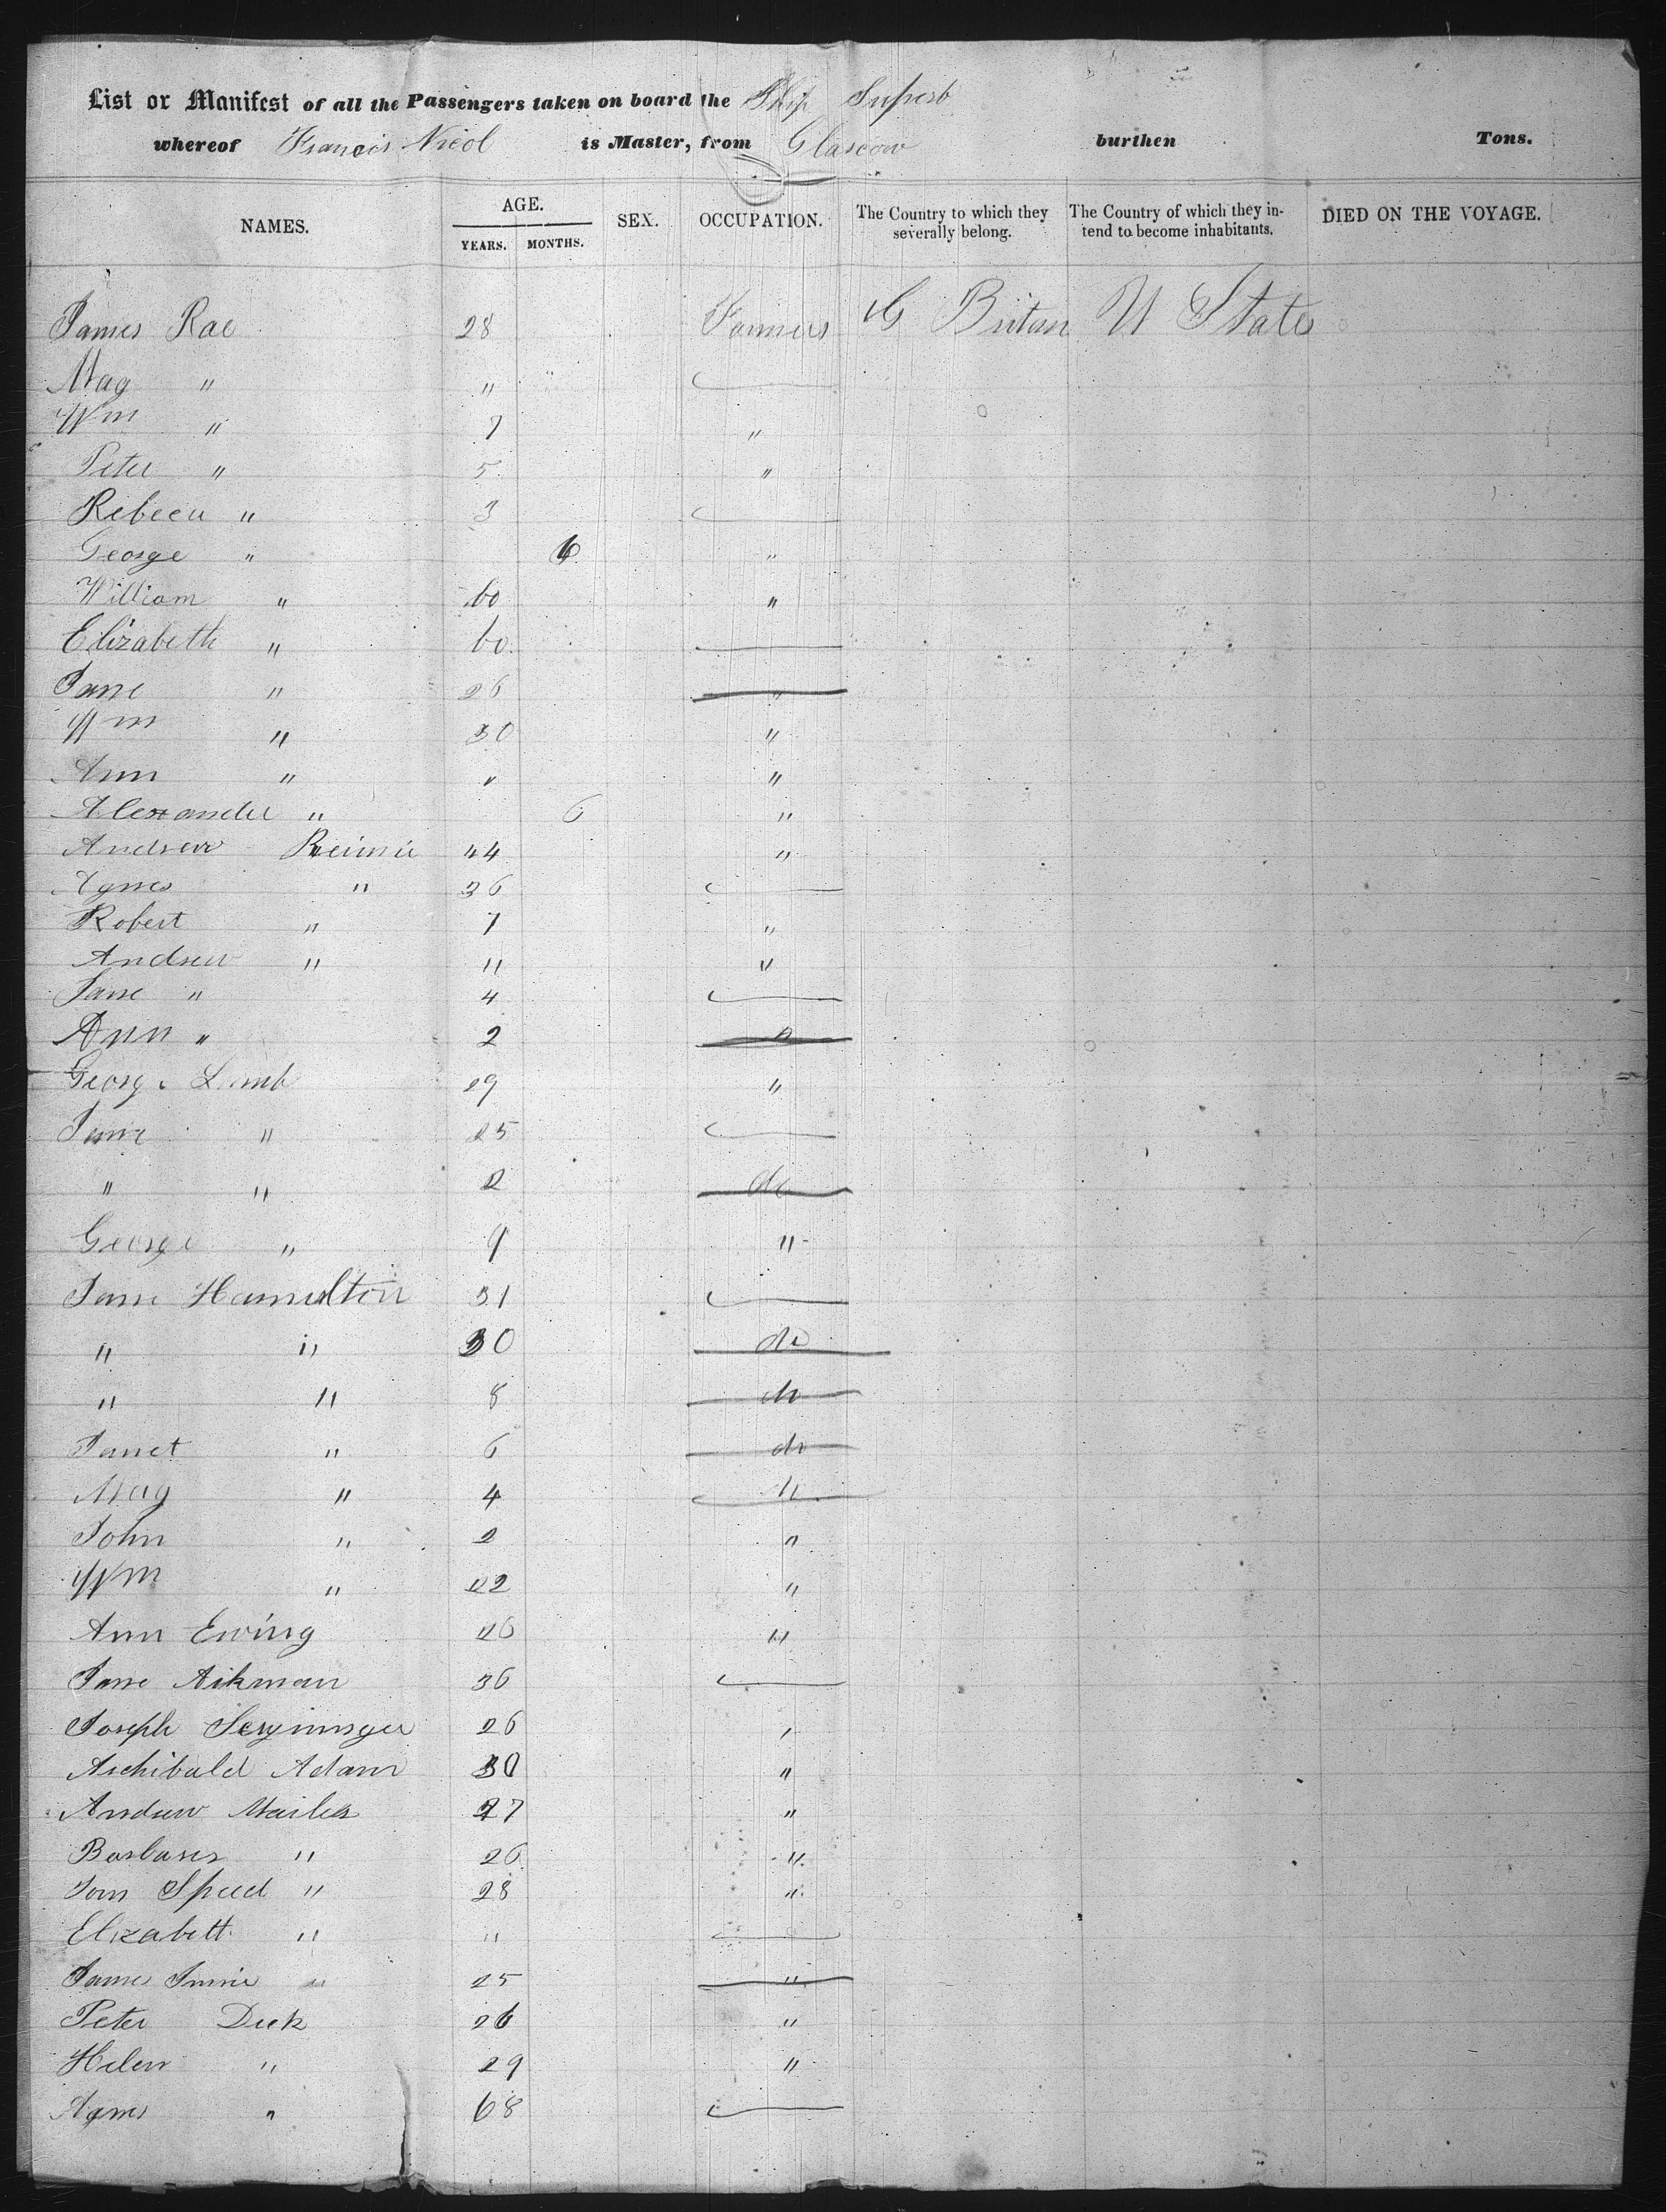 List or Manifest of all the Passengers taken on board the Ship Superb
whereof Francis Nicol is Master, from Glascow burthen Tons.
NAMES. AGE. YEARS. MONTHS. SEX. OCCUPATION. The Country to which they severally belong. The Country of which they intend to become inhabitants. DIED ON THE VOYAGE.
James Rae 28 Farmers G Britan U States
Mag " "
Wm " 7 "
Peter " 5 "
Rebecca " 3
George " 6 "
William " 60 "
Elizabeth " 60
Jane " 26 "
Wm " 30 "
Ann " " "
Alexander " 6 "
Andrew 44 "
Agnes " 36
Robert " 7 "
Andrew " 11 "
Jane " 4
Ann " 2 "
George Lamb 29 "
Jane " 25
" " 2 do
George " 9 "
Jane Hamilton 31
" " 30 do
" " 8 do
Janet " 6 do
Mag " 4 "
John " 2 "
Wm " 22 "
Ann Ewing 26 "
Jane Aikman 36
Joseph 26 "
Archibald Adam 30 "
Andrew 27 "
" 26 "
Speed " 28 "
Elizabett " "
James " 25 "
Peter Dick 26 "
Helen " 29 "
Agnes " 68